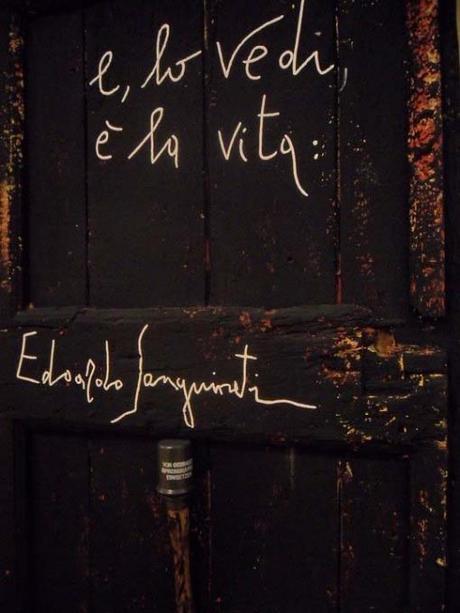 e, lo vedi,
è la vita:
Edoardo Sanguineti